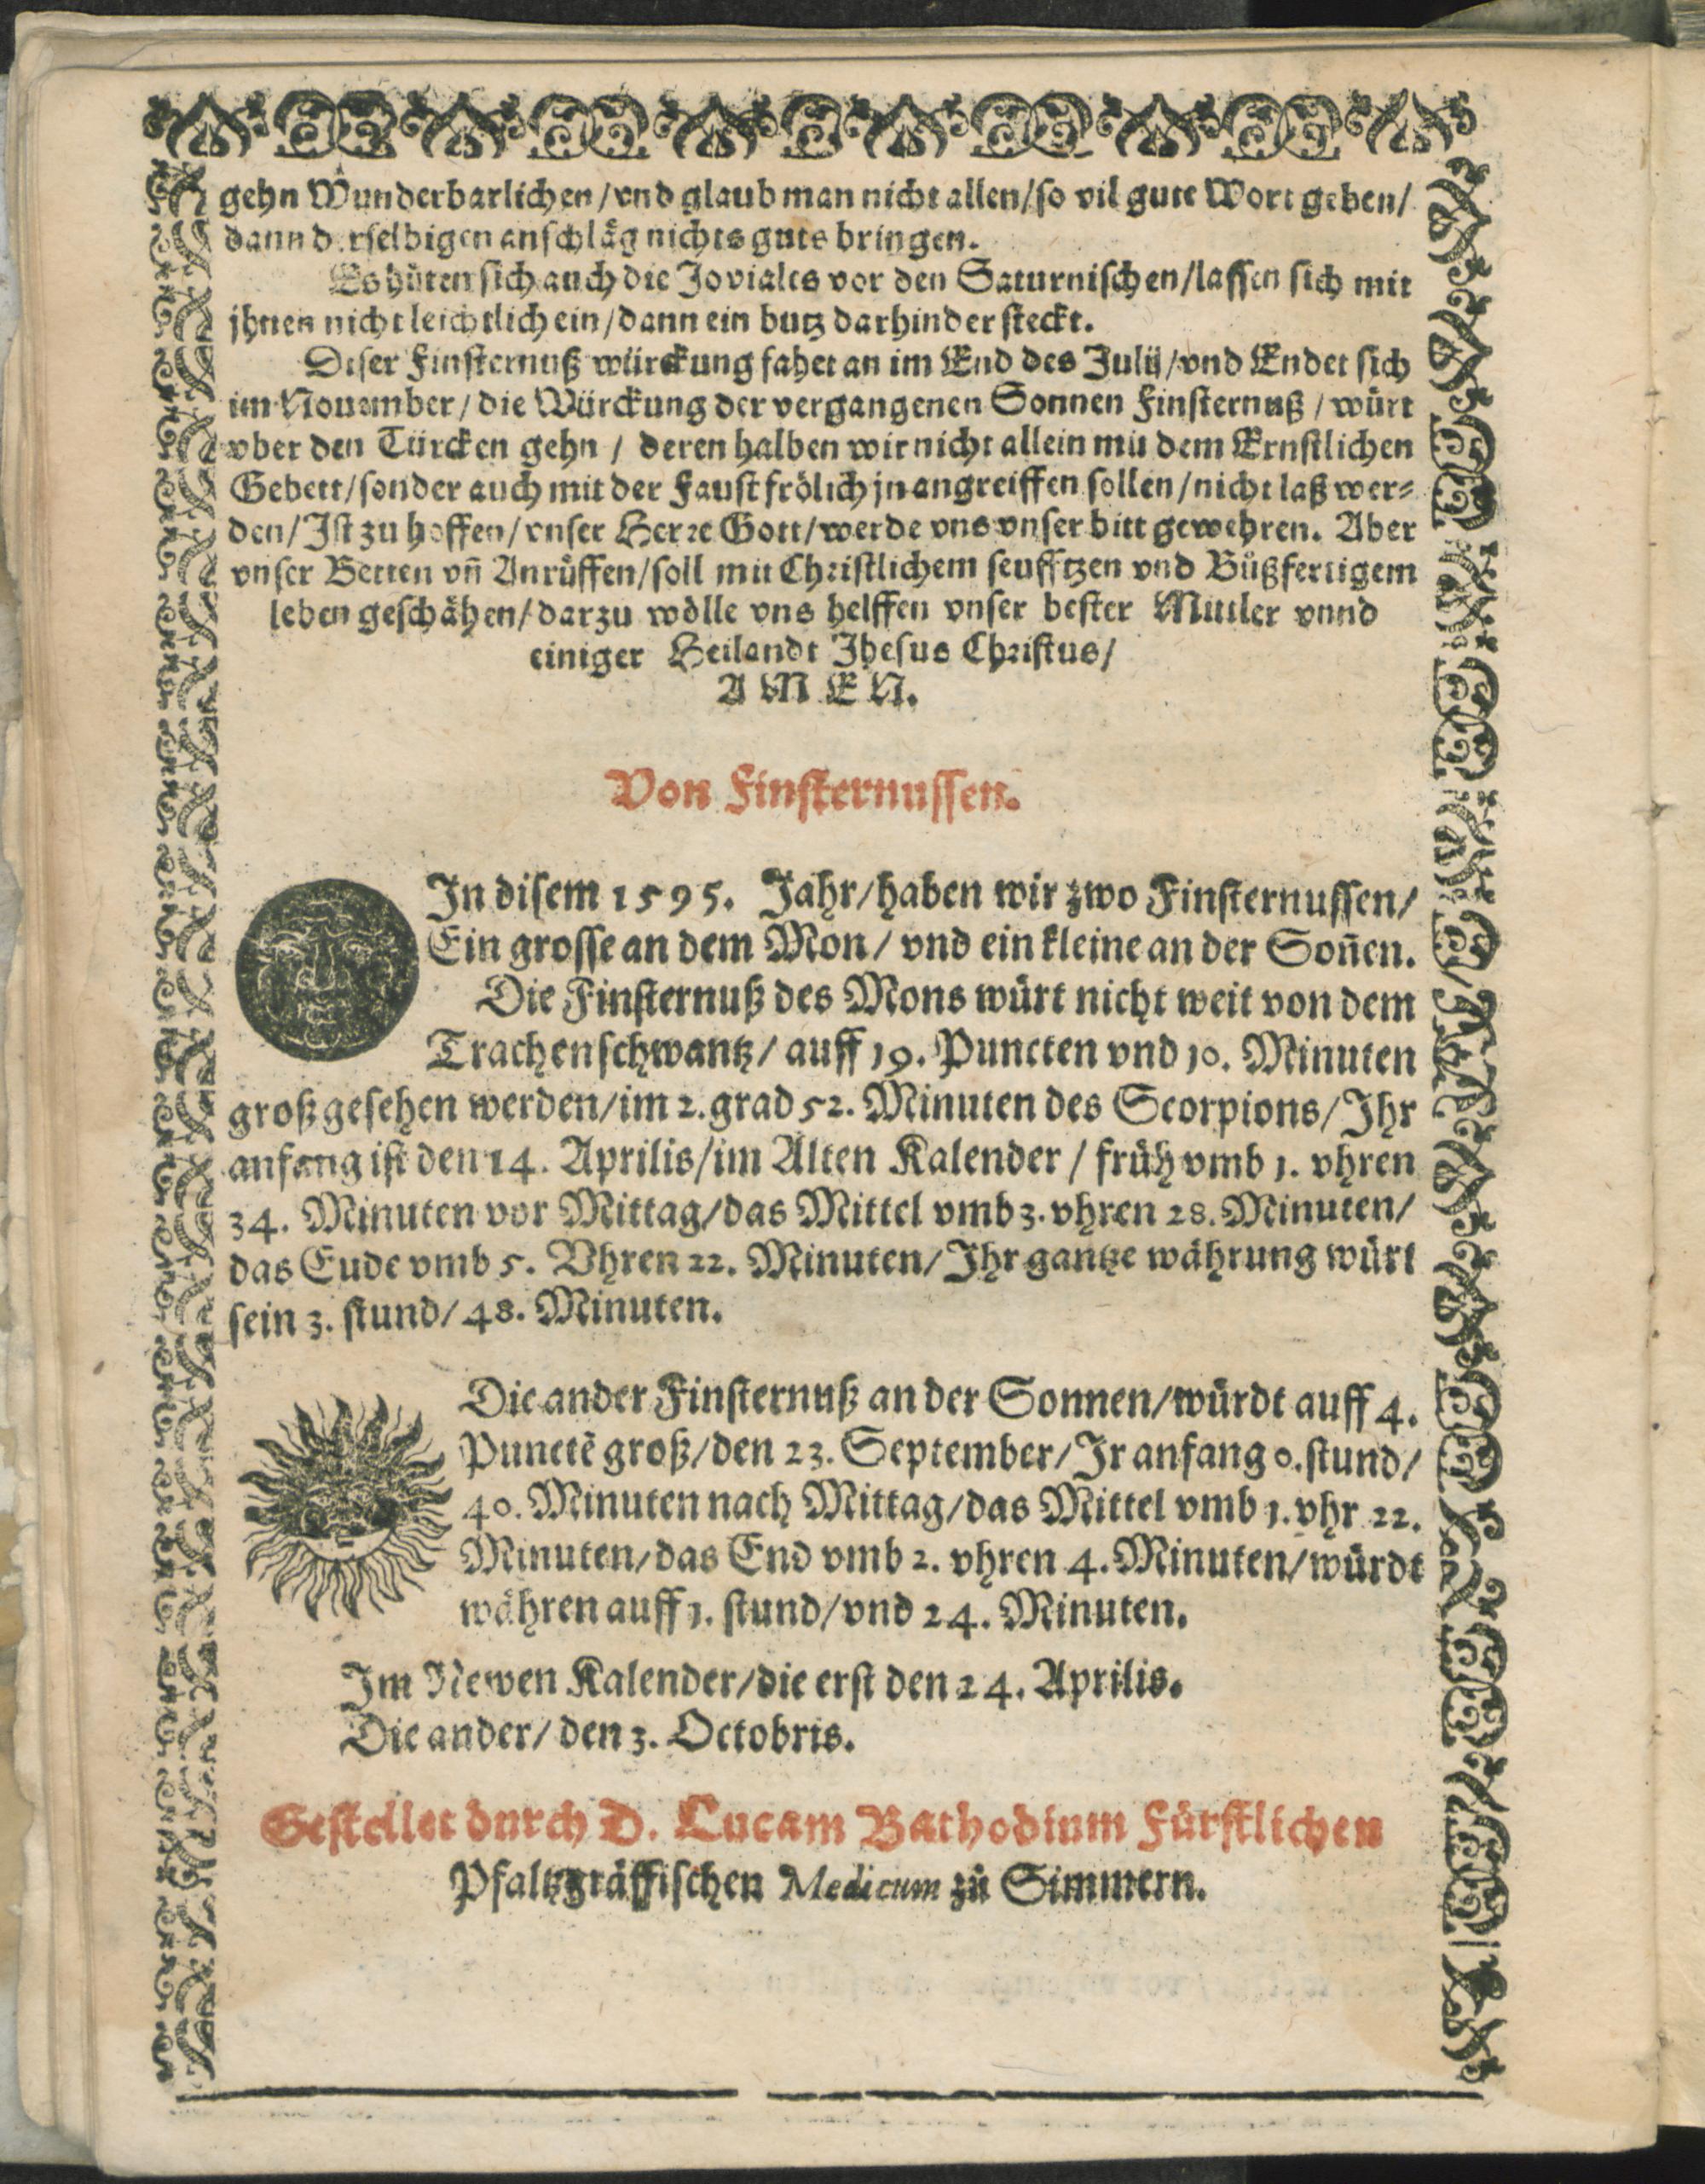 gehn Wunderbarlichen / vnd glaub man nicht allen / so vil gute Wort geben /
dann derselbigen anschläg nichts guts bringen.
Es hüten sich auch die Joviales vor den Saturnischen / lassen sich mit
jhnen nicht leichtlich ein / dann ein butz darhinder steckt.
Diser Finsternuß würckung fahet an im End des Julij / vnd Endet sich
im Nouember / die Würckung der vergangenen Sonnen Finsternuß / würt
vber den Türcken gehn / deren halben wir nicht allein mit dem Ernstlichen
Gebett / sonder auch mit der Faust frölich jn angreiffen sollen / nicht laß wer-
den / Ist zu hoffen / vnser Herre Gott / werde vns vnser bitt gewehren. Aber
vnser Betten vñ Anrüffen / soll mit Christlichem seufftzen vnd Büßfertigem
leben geschähen / darzu wölle vns helffen vnser bester Mittler vnnd
einiger Heilandt Jhesus Christus /
AMEN.
Von Finsternussen.
In disem 1595. Jahr / haben wir zwo Finsternussen /
Ein grosse an dem Mon / vnd ein kleine an der Soñen.
Die Finsternuß des Mons würt nicht weit von dem
Trachenschwantz / auff 19. Puncten vnd 10. Minuten
groß gesehen werden / im 2. grad 52. Minuten des Scorpions / Ihr
anfang ist den 14. Aprilis / im Alten Kalender / früh vmb 1. vhren
34. Minuten vor Mittag / das Mittel vmb 3. vhren 28. Minuten /
das Eude vmb 5. Vhren 22. Minuten / Ihr gantze währung würt
sein 3. stund / 48. Minuten.
Die ander Finsternuß an der Sonnen / würdt auff 4.
Punctẽ groß / den 23. September / Ir anfang 0. stund /
40. Minuten nach Mittag / das Mittel vmb 1. vhr 22.
Minuten / das End vmb 2. vhren 4. Minuten / würdt
währen auff 1. stund / vnd 24. Minuten.
Im Newen Kalender / die erst den 24. Aprilis.
Die ander / den 3. Octobris.
Gestellet durch D. Lucam Bathodium Fürstlichen
Pfaltzgräffischen Medicum zů Simmern.